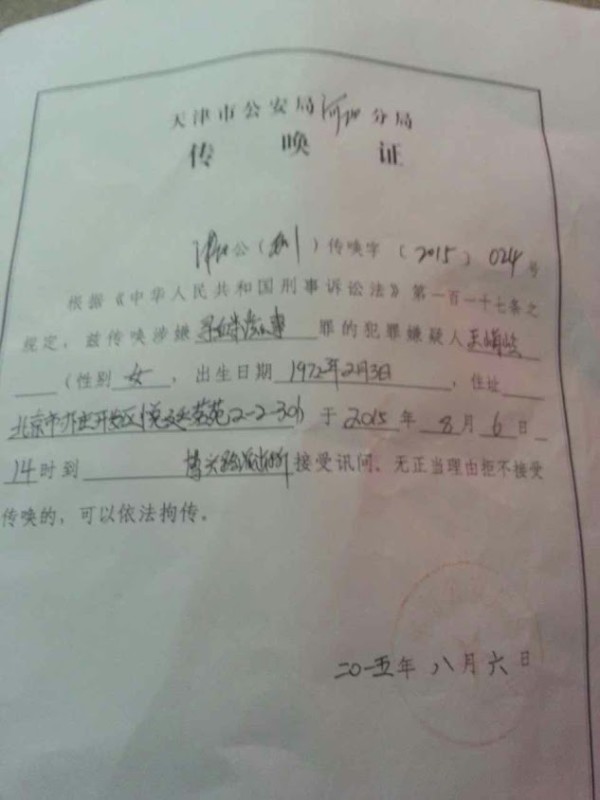 天津市公安局河西分局
传唤证
公( )传唤字〔2015〕024号
根据《中华人民共和国刑事诉讼法》第一百一十七条之
规定,兹传唤涉嫌寻衅滋事罪的犯罪嫌疑人王
(性别女,出生日期1972年2月3日,住址
北京市 开发区 2-2-301于2015年8月6日
14时到 派出所接受讯问。无正当理由拒不接受
传唤的,可以依法拘传。
二〇一五年八月六日